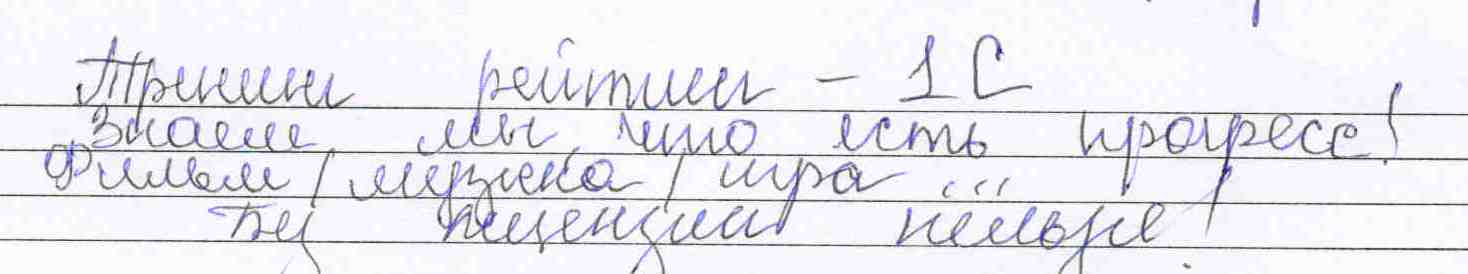 Трнинг рейтинг - 1С
Знаем мы, что есть прогресс!
Фильм / музыка / игра ...
Без лицензии нельзя!